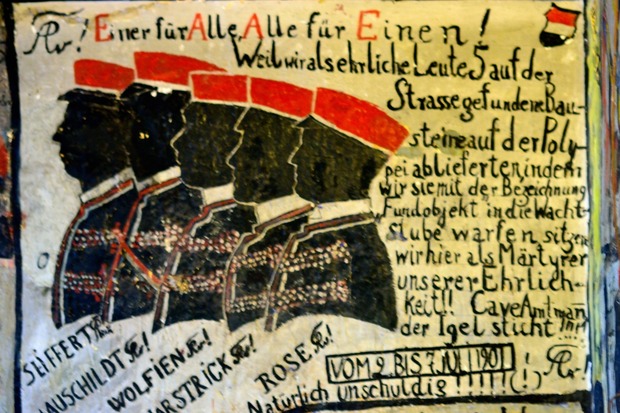 ! Einer für Alle, Alle für Einen!
Weil wir als ehrliche Leute 5 auf der
Strasse gefundene Bau-
steine auf der Poly-
pei ablieferten, indem
wir sie mit der Bezeichnung
"Fundobjekt" in die Wacht-
stube warfen sitzen
wir hier als Märtyrer
unserer Ehrlich-
keit!! Cave Amtmann
der Igel sticht !!!
SEIFFERT
HAUSCHILDT !
WOLFIEN !
ARSTRICK !
ROSE !
VOM 2. BIS 7. JULI 1901
Natürlich unschuldig !!!!!(!)